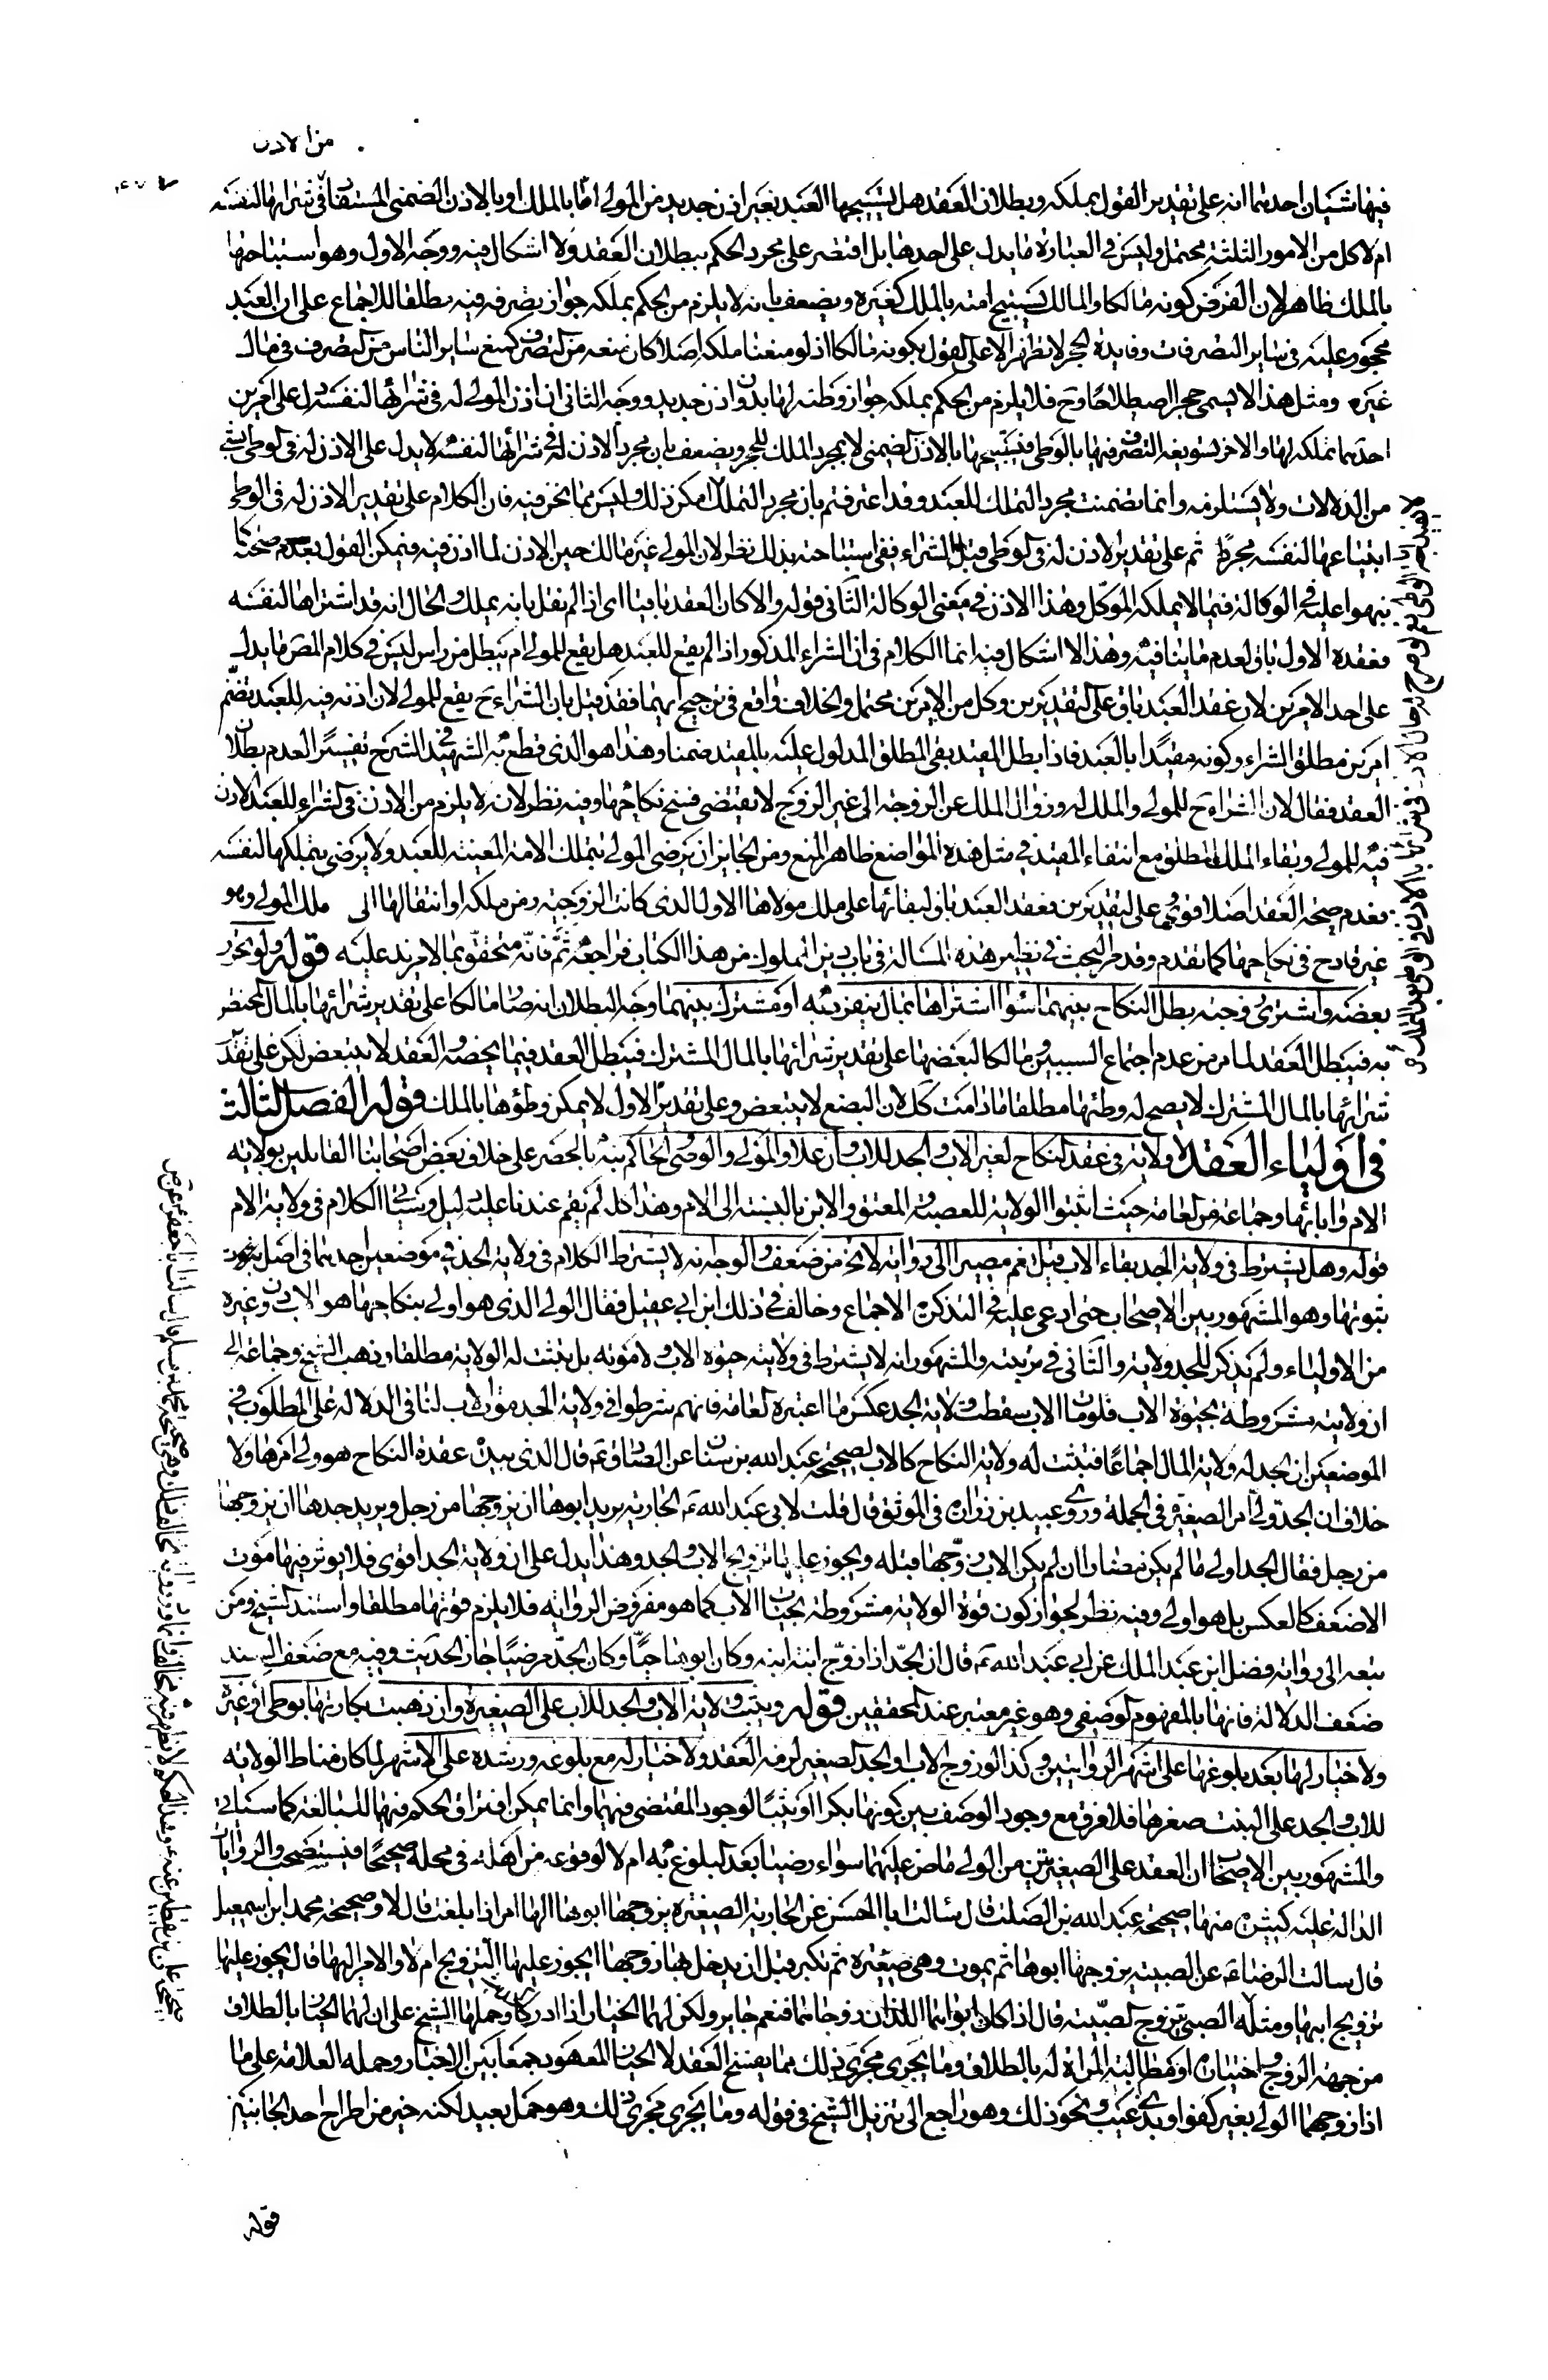 من الاذن
فيها شيئان احدهما انه على تقدير القول بملكه وبطلان العقد هل يستبيحها العبد بغير اذن جديد من المولى اما بالملك او بالاذن الضمنى المستفاد فى شرائها لنفسه
ام لا كل من الامور الثلثة محتمل وليس فى العبارة ما يدل على احدها بل اقتصر على مجرد الحكم ببطلان العقد ولا اشكال فيه ووجه الاول وهو استباحتها
بالملك ظاهر لان الفرض كونه مالكا والمالك يستبيح امته بالملك كغيره ويضعف بانه لا يلزم من الحكم بملكه جواز تصرفه فيه مطلقا للاجماع على ان العبد
محجور عليه فى ساير التصرفات وفايدة الحجر لا تظهر الا على القول بكونه مالكا اذ لو منعنا ملكه اصلا كان منعه من التصرف كمنع ساير الناس من التصرف فى مال
غيره ومثل هذا لا يسمى حجرا اصطلاحا وح فلا يلزم من الحكم بملكه جواز وطئه لها بدون اذن جديد ووجه الثانى ان اذن المولى له فى شرائها لنفسه دل على امرين
احدهما تملكه لها والاخر تسويغه التصرف فيها بالوطى فيستبيحها بالاذن الضمنى لا بمجرد الملك للحجر ويضعف بان مجرد الاذن له فى شرائها لنفسه لا يدل على الاذن له فى الوطى بشئ
من الدلالات ولا يستلزمه وانما تضمنت مجرد التملك للعبد وقد اعترفتم بان مجرد التملك امكن ذلك وليس مما نحن فيه فان الكلام على تقدير الاذن له فى الوطى
ابتياعها لنفسه مجردا ثم على تقدير الاذن له فى الوطى قبل الشراء ففى استباحته بذلك نظر لان المولى غير مالك حين الاذن لما اذن فيه فيمكن القول بعدم صحته كما
نبهوا عليه فى الوكالة فيما لا يملكه الموكل وهذا الاذن فى معنى الوكالة الثانى قوله والا كان العقد باقيا اى اذا لم نقل بانه يملك والحال انه قد اشتراها لنفسه
فعقده الاول باق لعدم ما ينافيه وهذا لا اشكال فيه انما الكلام فى ان الشراء المذكور اذا لم يقع للعبد هل يقع للمولى ام يبطل من راس ليس فى كلام المص ما يدل
على احد الامرين لان عقد العبد باق على التقديرين وكل من الامرين محتمل والخلاف واقع فى ترجيح ايهما فقد قيل بان الشراء ح يقع للمولى لان اذنه فيه للعبد تضمن
امرين مطلق الشراء وكونه مقيدا بالعبد فاذا بطل المقيد بقى المطلق المدلول عليه بالمقيد ضمنا وهذا هو الذى قطع به الشهيد فى الشرح تفسيرا لعدم بطلان
العقد فقال لان الشراء ح للمولى والملك له وزوال الملك عن الزوجة الى غير الزوج لا يقتضى فسخ نكاحها وفيه نظر لانه لا يلزم من الاذن فى الشراء للعبد الاذن
فيه للمولى وبقاء الملك المطلق مع انتفاء المقيد فى مثل هذه المواضع ظاهر المنع ومن الجايز ان يرضى المولى بتملك الامة المعينة للعبد ولا يرضى بتملكها لنفسه
فعدم صحة العقد اصلا اقوى وعلى التقديرين فعقد العبد باق لبقائها على ملك مولاها الاول الذى كانت الزوجية ومن ملكه او انتقالها الى ملك المولى وهو
غير قادح فى نكاحها كما تقدم وقد مر البحث فى نظير هذه المسالة فى باب دين المملوك من هذا الكتاب فراجعه ثم فانه متحقق بما لا مزيد عليه قوله ولو تحرر
بعضه واشترى زوجته بطل النكاح بينهما سواء اشتراها بمال ينفرد به او مشترك بينهما وجه البطلان انه صار مالكا على تقدير شرائها بالمال المختص
به فيبطل العقد لما مر من عدم اجتماع السببين ومالكا لبعضها على تقدير شرائها بالمال المشترك فيبطل العقد فيما يخصه والعقد لا يتبعض لكن على تقدير
شرائها بالمال المشترك لا يصح له وطئها مطلقا ما دامت كك لان البضع لا يتبعض وعلى تقدير الاول لا يمكن وطؤها بالملك قوله الفصل الثالث
فى اولياء العقد لا ولاية فى عقد النكاح لغير الاب والجد للاب وان علا والمولى والوصى والحاكم نبه بالحصر على خلاف بعض اصحابنا القايلين بولاية
الام وابائها وجماعة من العامة حيث اثبتوا الولاية للعصبة والمعتق والابن بالنسبة الى الام وهذا كله لم يقم عندنا عليه دليل وسيئاتى الكلام فى ولاية الام
قوله وهل يشترط فى ولاية الجد بقاء الاب قيل نعم مصيرا الى رواية لا تخ من ضعف والوجه انه لا يشترط الكلام فى ولاية الجد فى موضعين احدهما فى اصل ثبوت
ثبوتها وهو المشهور بين الاصحاب حتى ادعى عليه فى التذكرة الاجماع وخالف فى ذلك ابن ابى عقيل فقال الولى الذى هو اولى بنكاحها هو الاب دون غيره
من الاولياء ولم يذكر للجد ولاية والثانى فى مزيته والمشهور انه لا يشترط فى ولايته حيوة الاب ولا موته بل يثبت له الولاية مطلقا وذهب الشيخ وجماعة الى
ان ولايته مشروطة بحيوة الاب فلو مات الاب سقطت ولاية الجد عكس ما اعتبره العامة فانهم شرطوا فى ولاية الجد موت الاب لنا فى الدلالة على المطلوب فى
الموضعين ان الجد له ولاية المال اجماعا فتثبت له ولاية النكاح كالاب لصحيحة عبد الله بن سنان عن الصادق ع قال الذى بيده عقدة النكاح هو ولى امرها ولا
خلاف ان الجد ولى امر الصغيرة فى الجملة وروى عبيد بن زرارة فى الموثق قال قلت لابى عبد الله ع الجارية يريد ابوها ان يزوجها من رجل ويريد جدها ان يزوجها
من رجل فقال الجد اولى ما لم يكن مضارا ان لم يكن الاب زوجها قبله ويجوز عليها تزويج الاب والجد وهذا يدل على ان ولاية الجد اقوى فلا يوثر فيها موت
الاضعف كالعكس بل هو اولى وفيه نظر لجواز كون قوة الولاية مشروطة بحيات الاب كما هو مفروض الرواية فلا يلزم قوتها مطلقا واستند الشيخ ومن
تبعه الى رواية فضل ابن عبد الملك عن ابى عبد الله ع قال ان الجد اذا زوج ابنة ابنه وكان ابوها حيا وكان الجد مرضيا جاز الحديث وفيه مع ضعف السند
ضعف الدلالة فانها بالمفهوم الوصفى وهو غير معتبر عند المحققين قوله ويثبت ولاية الاب والجد للاب على الصغيرة وان ذهبت بكارتها بوطى او غيره
ولا خيار لها بعد بلوغها على اشهر الروايتين وكذا لو زوج الاب او الجد الصغير لزمه العقد ولا خيار له مع بلوغه ورشده على الاشهر لما كان مناط الولاية
للاب والجد على البنت صغرها فلا فرق مع وجود الوصف بين كونها بكرا او ثيبا لوجود المقتضى فيهما وانما يمكن افتراق الحكم فيهما للبالغة كما سياتى
والمشهور بين الاصحاب ان العقد على الصغيرين من الولى ماض عليهما سواء رضيا بعد البلوغ به ام لا لوقوعه من اهله فى محله صحيحا فيستصحب والروايات
الدالة عليه كثيرة منها صحيحة عبد الله بن الصلت قال سالت ابا الحسن عن الجارية الصغيرة يزوجها ابوها الها امر اذا بلغت قال لا وصحيحة محمد ابن اسمعيل
قال سالت الرضا ع عن الصبية يزوجها ابوها ثم يموت وهى صغيرة ثم تكبر قبل ان يدخل بها زوجها ايجوز عليها التزويج ام لا والامر اليها قال يجوز عليها
تزويج ابيها ومثله الصبى يزوج الصبية قال اذا كان ابواهما اللذان زوجاهما فنعم جايز ولكن لهما الخيار اذا ادركا وحملها الشيخ على ان لهما الخيار بالطلاق
من جهة الزوج واختياره او مطالبة المراة له بالطلاق وما يجرى مجرى ذلك مما يفسخ العقد لا الخيار المعهود جمعا بين الاخبار وحمله العلامة على ما
اذا زوجهما الولى بغير كفو او بذى عيب ونحو ذلك وهو راجع الى تنزيل الشيخ فى قوله وما يجرى مجرى ذلك وهو حمل بعيد لكنه خير من اطراح احد الجانبين
قوله